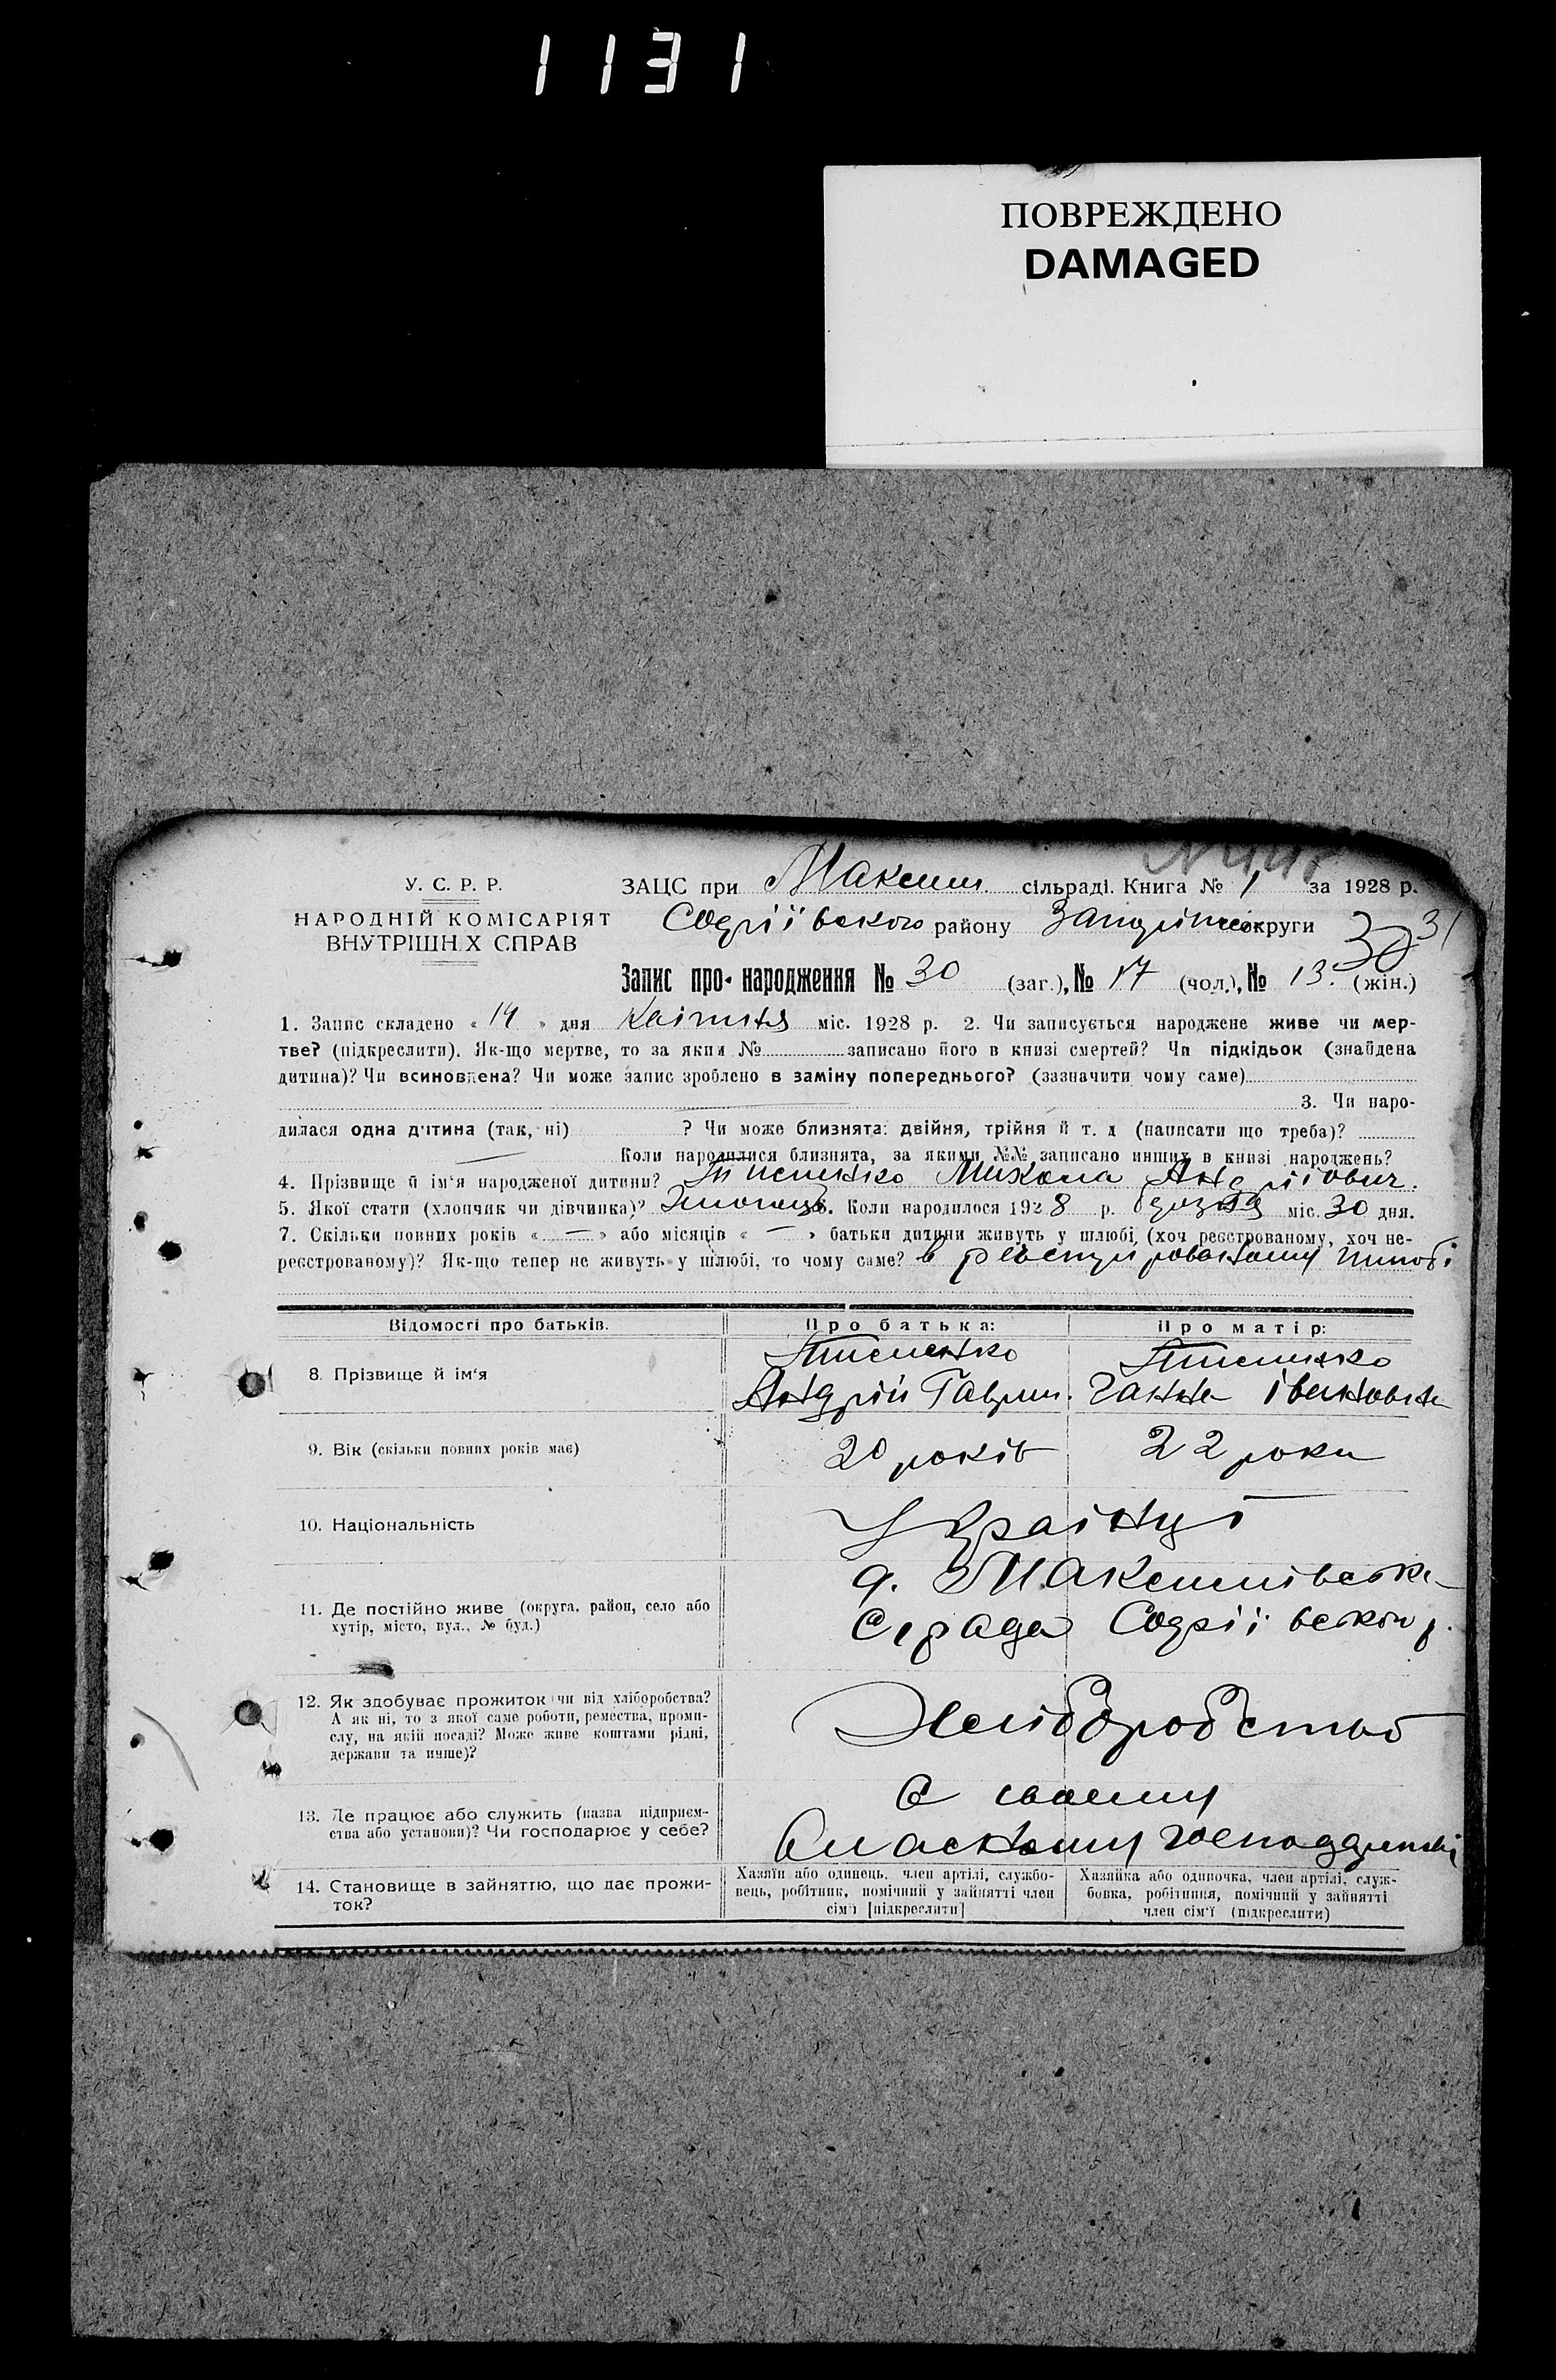 1131
ПОВРЕЖДЕНО
DAMAGED
У. С. Р. Р.
НАРОДНІЙ КОМІСАРІЯТ
ВНУТРІШН Х СПРАВ
ЗАЦС при Максим. сільраді. Книга № 1 за 1928 р.
Софіївського району округи
30 31
Запис про народження № 30 (заг.), № 17 (чол.), № 13. (жін.)
1. Запис складено « 14 » дня Квітня міс. 1928 р. 2. Чи записується народжене живе чи мер-
тве? (підкреслити). Як-що мертве, то за яким № записано його в книзі смертей? Чи підкідьок (знайдена
дитина)? Чи всиновлена? Чи може запис зроблено в заміну попереднього? (зазначити чому саме)
3. Чи наро-
дилася одна дитина (так, ні) ? Чи може близнята: двійня, трійня й т. д (написати що треба)?
Коли народилися близнята, за якими №№ записано инших в книзі народжень?
4. Прізвище й ім'я народженої дитини? Микола Андрійович.
5. Якої стати (хлопчик чи дівчинка)? 6. Коли народилося 1928 р. міс. 30 дня.
7. Скільки повних років « — » або місяців « — » батьки дитини живуть у шлюбі (хоч реєстрованому, хоч не-
реєстрованому)? Як-що тепер не живуть у шлюбі, то чому саме? в шлюбі
Відомості про батьків.
Про батька:
Про матір:
8. Прізвище й ім'я
Андрій Гаврил.
Ганна Івановна
9. Вік (скільки повних років має)
20 років
22 роки
10. Національність
Українці
11. Де постійно живе (округа, район, село або
хутір, місто, вул., № буд.)
Максимівська
с/рада Софіївськ р.
12. Як здобуває прожиток чи від хліборобства?
А як ні, то з якої саме роботи, ремества, проми-
слу, на якій посаді? Може живе коштами рідні,
держави та инше)?
Хліборобство
13. Де працює або служить (назва підприєм-
ства або установи)? Чи господарює у себе?
в своєму
власному господарстві
14. Становище в зайняттю, що дає прожи-
ток?
Хазяїн або одинець, член артілі, службо-
вець, робітник, помічний у зайнятті член
сім'ї [підкреслити]
Хазяйка або одиночка, член артілі, служ-
бовка, робітниця, помічний у зайнятті
член сім'ї (підкреслити)